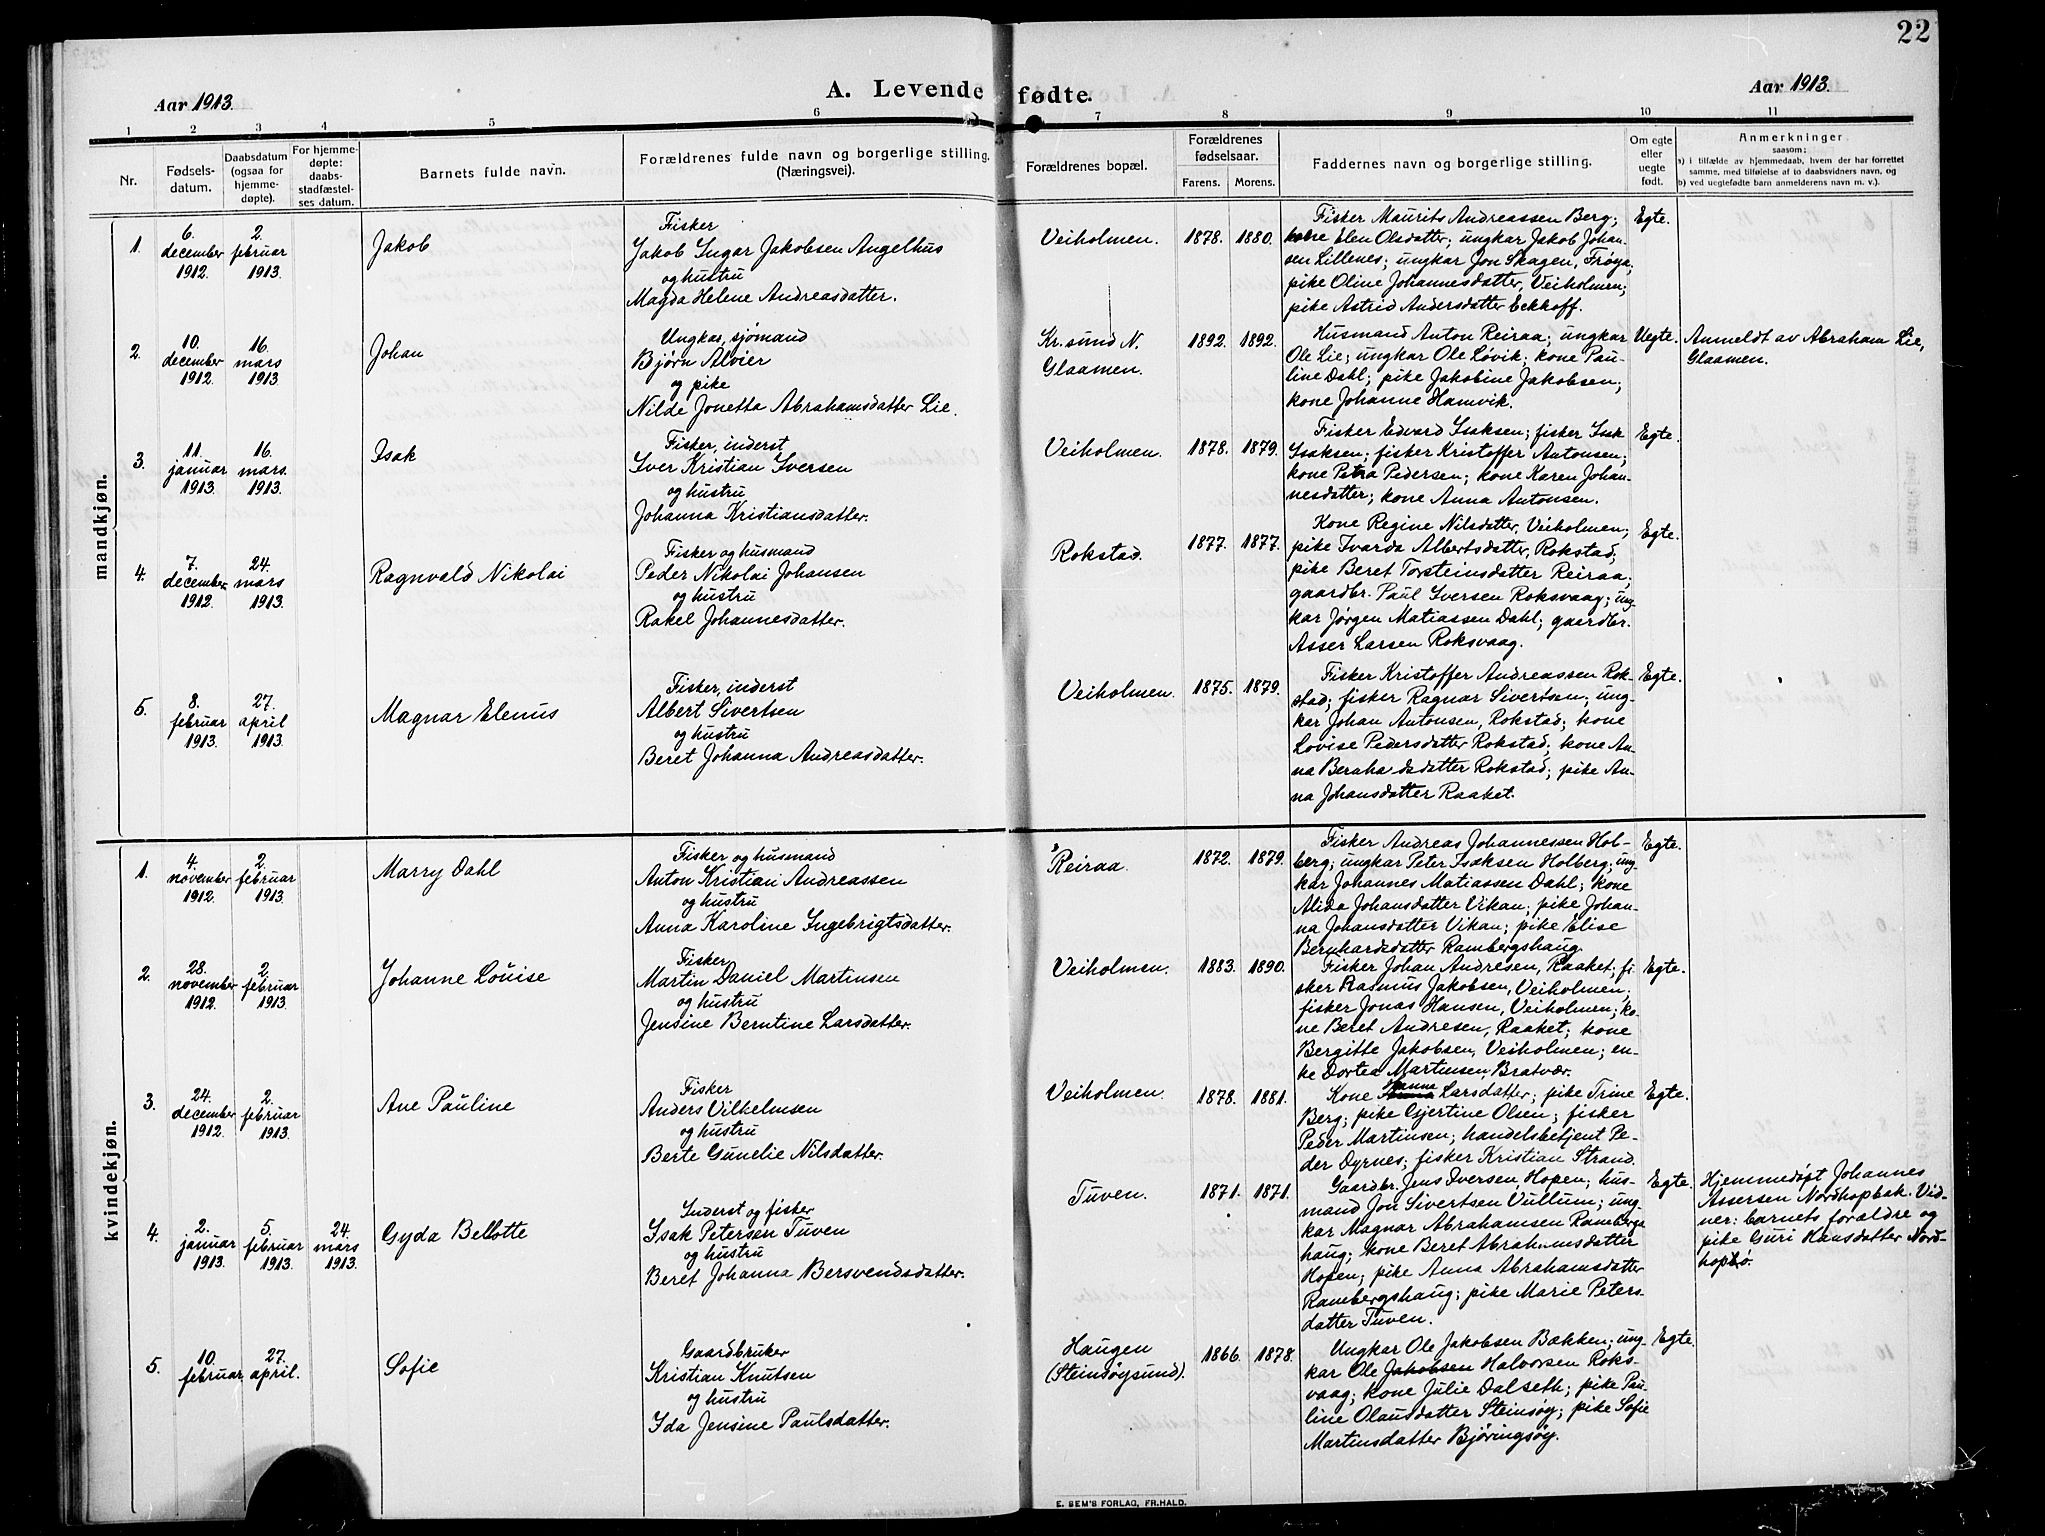 22
Aar 1913.
A. Levende fødte.
Aar 1913.
1 2 3 4 5 6 7 8 9 10 11
Nr.
Fødsels-
datum.
Daabsdatum
(ogsaa for
hjemme-
døpte).
For hjemme-
døpte:
daabs-
stadfæstel-
ses datum.
Barnets fulde navn.
Forældrenes fulde navn og borgerlige stilling.
(Næringsvei).
Forældrenes bopæl.
Forældrenes
fødselsaar.
Farens. Morens.
Faddernes navn og borgerlige stilling.
Om egte
eller
uegte
født.
Anmerkninger
saasom:
a) i tilfælde av hjemmedaab, hvem der har forrettet
samme, med tilføielse af to daabsvidners navn, og
b) ved uegtefødte barn anmelderens navn m. v.).
mandkjøn.
1.
6.
december
1912
2.
februar
1913.
Jakob
Fisker
Jakob Ingar Jakobsen Angelhus
og hustru
Magda Helene Andreasdatter.
Veiholmen.
1878. 1880.
Fisker Maurits Andreassen Berg;
kone Elen Olsdatter; ungkar Jakob Johan-
sen Lillenes; ungkar Jon Skagen, Frøya;
pike Oline Johannesdatter, Veiholmen;
pike Astrid Andersdatter Eckhoff.
Egte.
2.
10.
december
1912.
16.
mars
1913.
Johan
Ungkar, sjømand
Bjørn Alvier
og pike
Nilde Jonetta Abrahamsdatter Lie.
Kr.sund N.
Glaamen.
1892. 1892.
Husmand Anton Reiraa; ungkar
Ole Lie; ungkar Ole Løvik; kone Pau-
line Dahl; pike Jakobine Jakobsen;
kone Johanne Hamvik.
Uegte.
Anmeldt av Abraham Lie,
Glaamen.
3.
11.
januar
1913.
16.
mars.
1913.
Isak
Fisker, inderst
Iver Kristian Iversen
og hustru
Johanna Kristiansdatter.
Veiholmen.
1878. 1879.
Fisker Edvard Isaksen; fisker Isak
Isaksen; fisker Kristoffer Antonsen;
kone Petra Pedersen; kone Karen Johan-
nesdatter; kone Anna Antonsen.
Egte.
4.
7.
december
1912.
24.
mars
1913.
Ragnvald Nikolai
Fisker og husmand
Peder Nikolai Johansen
og hustru
Rakel Johannesdatter.
Rokstad.
1877. 1877.
Kone Regine Nilsdatter, Veiholmen;
pike Ivarda Albertsdatter, Rokstad;
pike Beret Torsteinsdatter Reiraa;
gaardbr. Paul Iversen Roksvaag; ung-
kar Jørgen Matiassen Dahl; gaardbr.
Asser Larsen Roksvaag.
Egte.
5.
8.
februar
1913.
27.
april
1913.
Magnar Elenus
Fisker, inderst
Albert Sivertsen
og hustru
Beret Johanna Andreasdatter.
Veiholmen.
1875. 1879.
Fisker Kristoffer Andreassen Rok-
stad; fisker Ragnar Sivertsen; ung-
kar Johan Antonsen, Rokstad; kone
Lovise Pedersdatter Rokstad; kone An-
na Berahardsdatter Rokstad; pike An-
na Johansdatter Raaket.
Egte.
kvindekjøn.
1.
4.
november
1912.
2.
februar
1913.
Marry Dahl
Fisker og husmand
Anton Kristian Andreassen
og hustru
Anna Karoline Ingebrigtsdatter.
Reiraa.
1872. 1879.
Fisker Andreas Johannessen Hol-
berg; ungkar Peter Isaksen Holberg; ung-
kar Johannes Matiassen Dahl; kone
Alida Johansdatter Vikan; pike Johan-
na Johansdatter Vikan; pike Elise
Bernhardsdatter Rambergshaug
Egte.
2.
28.
november
1912.
2.
februar
1913.
Johanne Louise
Fisker
Martin Daniel Martinsen
og hustru
Jensine Berntine Larsdatter.
Veiholmen.
1883. 1890.
Fisker Johan Andresen, Raaket; fi-
sker Rasmus Jakobsen, Veiholmen;
fisker Jonas Hansen, Veiholmen; ko-
ne Beret Andresen, Raaket; kone
Bergitte Jakobsen, Veiholmen; en-
ke Dortea Martinsen, Bratvær.
Egte.
3.
24.
december
1912.
2.
februar
1913.
Ane Pauline
Fisker
Anders Vilhelmsen
og hustru
Berte Gunelie Nilsdatter.
Veiholmen.
1878. 1881.
Kone Hanna Larsdatter; pike Trine
Berg; pike Gjertine Olsen; fisker
Peder Martinsen; handelsbetjent Pe-
der Dyrnes; fisker Kristian Strand.
Egte.
4.
2.
januar
1913.
5.
februar
1913.
24.
mars
1913.
Gyda Bellotte
Inderst og fisker
Isak Petersen Tuven
og hustru
Beret Johanna Bersvendsdatter.
Tuven.
1871. 1871.
Gaardbr. Jens Iversen, Hopen; hus-
mand Jon Sivertsen Vullum; ung-
kar Magnar Abrahamsen Ramebergs-
haug; kone Beret Abrahamsdatter
Hopen; pike Anna Abrahamsdatter
Ramebergshaug; pike Marie Peters-
datter Tuven.
Egte.
Hjemmedøpt Johannes
Assersen Nordhopbak. Vid-
ner: barnets forældre og
pike Guri Hansdatter Nord-
hopbø.
5.
10.
februar
27.
april.
Sofie
Gaardbruker
Kristian Knutsen
og hustru
Ida Jensine Paulsdatter.
Haugen
(Steinsøysund).
1866. 1878.
Ungkar Ole Jakobsen Bækken; ung-
kar Ole Jakobsen Halvorsen Roks-
vaag; kone Julie Dalseth; pike Pau-
line Olausdatter Steinsøy; pike Sofie
Martinsdatter Bjøringsøy.
Egte.
E. SEM'S FORLAG, FR.HALD.